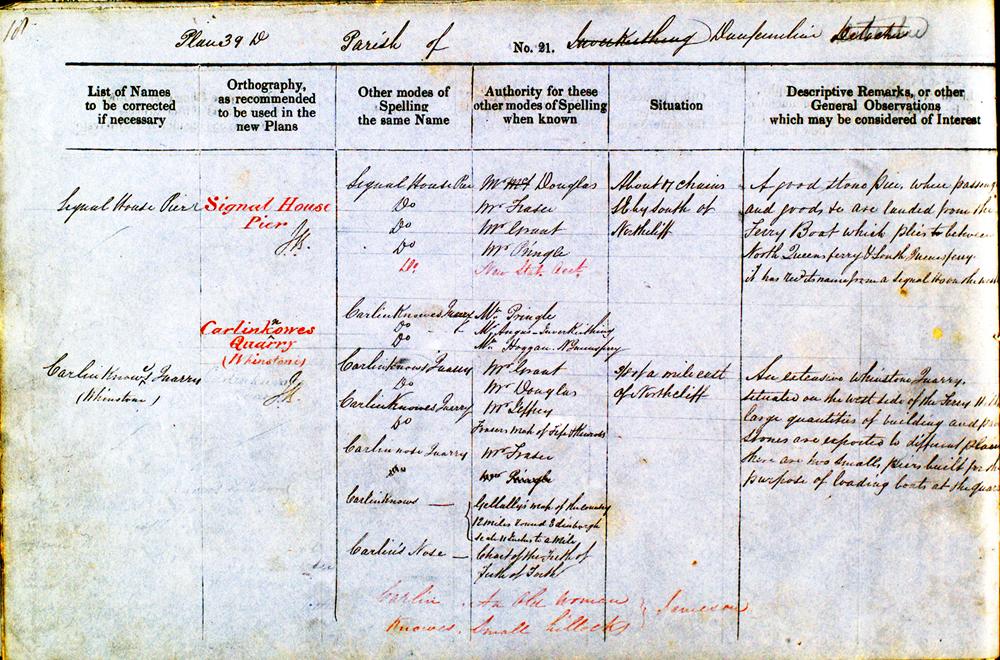 181
Plan 39 D Parish of No. 21. Inverkeithing Dunfermline Detached
List of Names
to be corrected
if necessary
Orthography,
as recommended
to be used in the
new Plans
Other modes of
Spelling
the same Name
Authority for these
other modes of Spelling
when known
Situation
Descriptive Remarks, or other
General Observations
which may be considered of Interest
Signal House Pier
Signal House
Pier
Signal House Pier
Do
Do
Do
Do.
Mr Douglas
Mr Fraser
Mr Grant
Mr Pringle
New Stat. Acct.
About 17 chains
SE by south of
Northcliff
A good stone Pier, where passen
and goods &c are landed from the
Ferry Boat which plies to between
North Queensferry & South Queensferry.
it has recd its name from a Signal Ho on the
Carlin Knows Quarry
(Whinstone)
Carlinknowes
Quarry
(Whinstone)
Carlin Knowes Quarry
Do
Do
Carlin Knows Quarry
Do
Carlin Knowes Quarry
Do
Carlin nose Quarry
Do
Carlin Knows
Carlin's Nose
Mr. Pringle
Mr Angus Inverkeithing
Mr. Hoggan N. Queensferry
Mr Grant
Mr Douglas
Mr Jeffrey
Frasers map of Fife & Kinross
Mr Fraser
Mr Pringle
Gellatly's map of the country
12 miles round Edinburgh
Scale 1 Inches to a mile
Chart of the Firth of
Firth of Forth
of a mile east
of Northcliff
An extensive whinstone Quarry,
situated on the west side of the Ferry
large quantities of building and
stones are exported to different places
there are two small piers built for the
purpose of loading boats at the quar
Carlin . An Old Woman
Knowes . Small hillocks
Jamieson